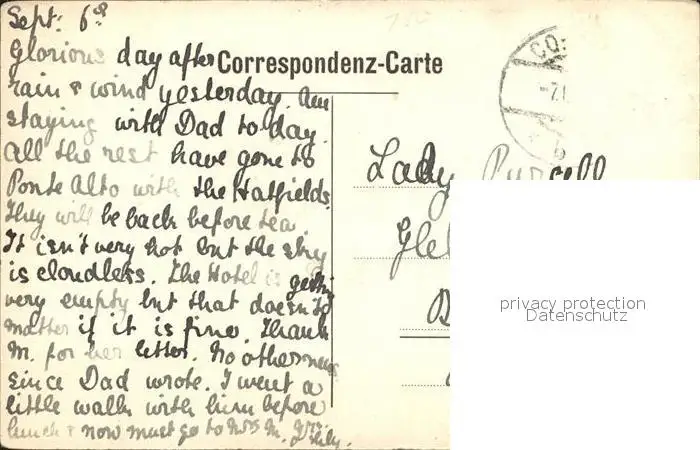 Sept: 6th
Glorious day after
Correspondenz-Carte
rain & wind yesterday. Am
staying with Dad to day.
All the rest have gone to
Ponte Alto with the Hatfields.
They will be back before tea.
It isn't very hot but the sky
is cloudless. The Hotel is getting
very empty but that doesn't
matter if it is fine. Thank
M. for her letter. No other news
since Dad wrote. I went a
little walk with him before
lunch & now must go to
Lady Purcell
privacy protection
Datenschutz